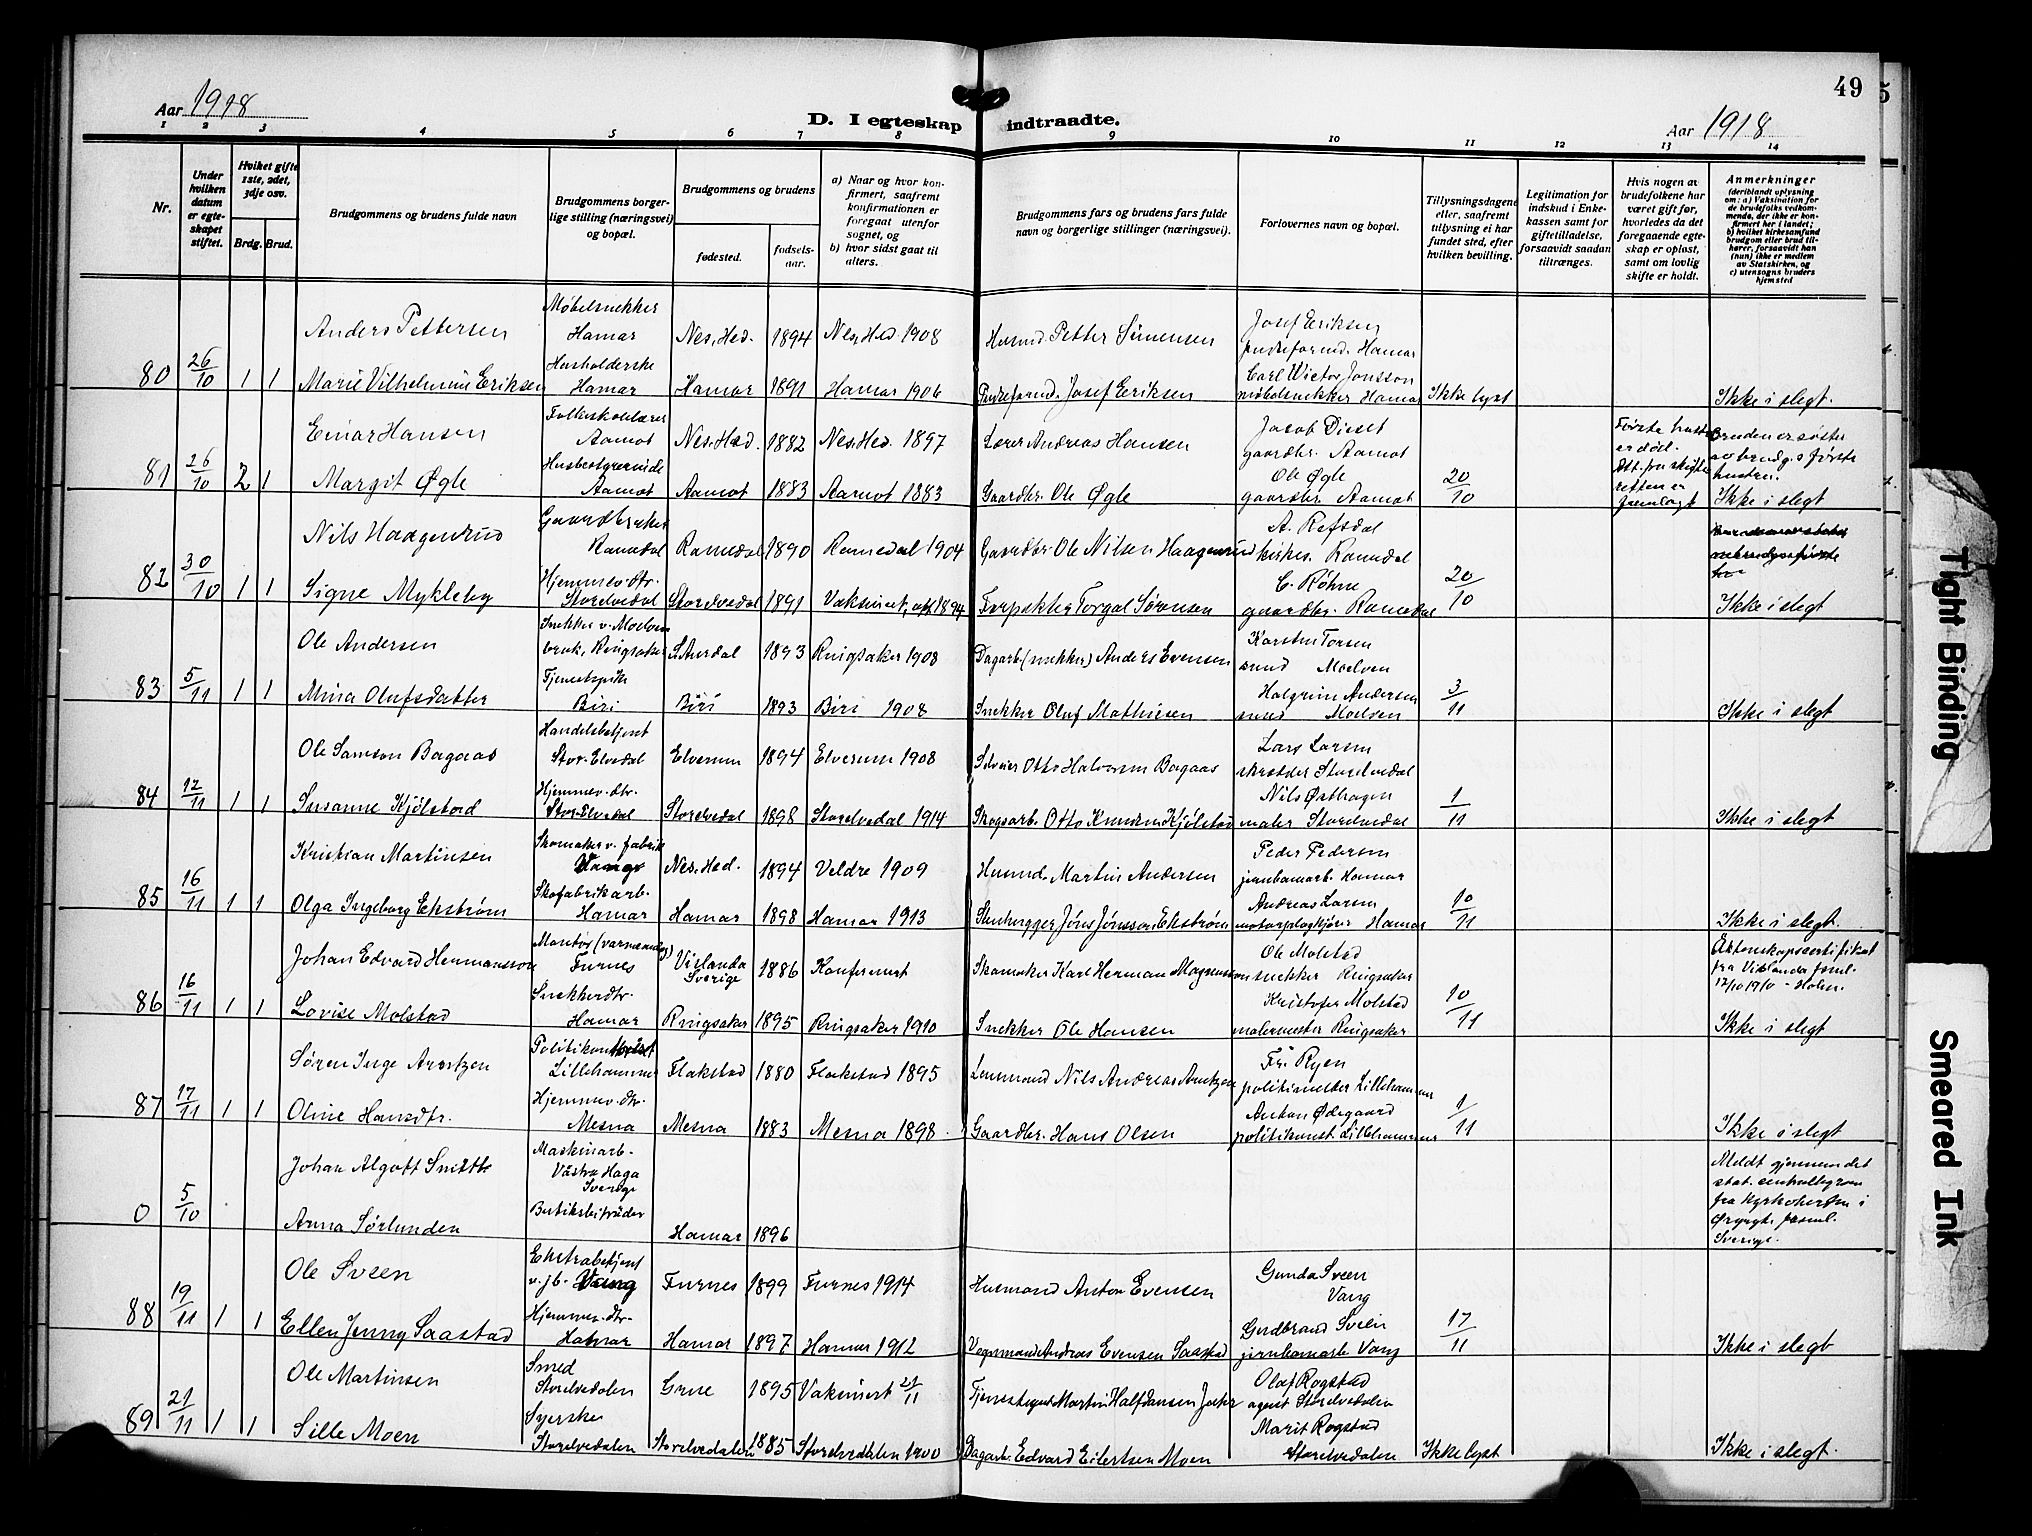 49
Aar 1918
D. I egteskap indtraadte.
Aar 1918
1 2 3 4 5 6 7 8 9 10 11 12 13 14
Nr.
Under hvilken datum er egteskapet stiftet.
Hvilket gifte 1ste, 2det, 3dje osv.
Brdg. Brud.
Brudgommens og brudens fulde navn
Brudgommens borgerlige stilling (næringsvei) og bopæl.
Brudgommens og brudens
fødested.
fødselsaar.
a) Naar og hvor konfirmert, saafremt konfirmationen er foregaat utenfor sognet, og
b) hvor sidst gaat til alters.
Brudgommens fars og brudens fars fulde navn og borgerlige stillinger (næringsvei).
Forlovernes navn og bopæl.
Tillysningsdagene eller, saafremt tillysning ei har fundet sted, efter hvilken bevilling.
Legitimation for indskud i Enkekassen samt for giftetilladelse, forsaavidt saadan tiltrænges.
Hvis nogen av brudefolkene har været gift før, hvorledes da det foregaaende egteskap er opløst, samt om lovlig skifte er holdt.
Anmerkninger
(deriblandt oplysning om: a) Vaksination for de brudefolks vedkommende, der ikke er konfirmert her i landet; b) hvilket kirkesamfund brudgom eller brud tilhører, forsaavidt han (hun) ikke er medlem av Statskirken, og c) utensogns bruders hjemsted
80 26/10 1 1
Anders Pettersen Møbelsnekker Hamar Nes, Hed. 1894 Nes, Hed 1908 Husmd. Petter Simensen Josef Eriksen Hamar
Marie Vilhelmine Eriksen Husholderske Hamar Hamar 1891 Hamar 1906 Josef Eriksen Carl Wictor Jonsson møbelsnekker Hamar Ikke lyst Ikke i slegt.
81 26/10 2 1
Einar Hansen Folkeskolelærer Aamot Nes, Hed. 1882 Nes, Hed. 1897 Lærer Andreas Hansen Jacob Diset gaardbr. Aamot
Første hustru er død. Att. fra skifteretten er fremlagt
Bruden er søster av brudg.s første hustru.
Margit Øgle Husbestyrerinde Aamot Aamot 1883 Aamot 1883 Gaardbr. Ole Øgle Ole Øgle gaardbr. Aamot 20/10 Ikke i slegt
82 30/10 1 1
Nils Haagenrud Gaardbruker Romedal Romedal 1890 Romedal 1904 Gaardbr. Ole Nilsen Haagenrud A. Refsdal kirkes. Romedal
Signe Mykleby Hjemmev. dtr. Storelvedal Storelvedal 1891 Vaksinert 1894 Forpakter Torgal Sørensen C. Røhne gaardbr. Romedal 20/10 Ikke i slegt
83 5/11 1 1
Ole Andersen Snekker v. Moelven bruk, Ringsaker S. Aurdal 1893 Ringsaker 1908 Dagarb. (snekker) Anders Evensen Karsten Torsen smed Moelven
Mina Olufsdatter Tjenestepike Biri Biri 1893 Biri 1908 Snekker Oluf Mathiesen Halgrim Andersen smed Moelven 3/11 Ikke i slegt
84 12/11 1 1
Ole Samson Bagaas Handelsbetjent Stor-Elvedal Elverum 1894 Elverum 1908 Otto Halvorsen Bagaas Lars Larsen skrædder Storelvedal
Susanne Kjølstad Hjemmev. dtr. Stor-Elvedal Storelvedal 1898 Storelvedal 1914 Skogsarb. Otto Knudsen Kjølstad Nils Østhagen maler Storelvedal 1/11 Ikke i slegt
85 16/11 1 1
Kristian Martinsen Skomaker v. fabrik Vang Nes, Hed. 1894 Veldre 1909 Husmd. Martin Andersen Peder Pedersen jernbanearb. Hamar
Olga Ingeborg Ekstrøm Skofabrikarb. Hamar Hamar 1898 Hamar 1913 Stenhugger Jöns Jönsson Ekstrøm Andreas Larsen motorplogkjører Hamar 10/11 Ikke i slegt.
86 16/11 1 1
Johan Edvard Hermansson Montør (varmeanlæg) Furnes Vislanda Sverige 1886 Konfirmert Skomaker Karl Herman Magnusson Ole Molstad snekker Ringsaker
Äktenskapscertifikat fra Vislanda
Lovise Molstad Snekkerdtr. Hamar Ringsaker 1895 Ringsaker 1910 Snekker Ole Hansen Kristofer Molstad malermester Ringsaker 10/11 Ikke i slegt
87 17/11 1 1
Søren Inge Arntzen Politikonstabel Lillehammer Flakstad 1880 Flakstad 1895 Lensmand Nils Andreas Arntzen Fr. Ryen politimester Lillehammer
Oline Hansdtr. Hjemmev. dtr. Mesna Mesna 1883 Mesna 1898 Gaardbr. Hans Olsen Anton Ødegaard politikonst. Lillehammer 1/11 Ikke i slegt
0 5/10
Johan Algott Maskinarb. Västra Haga Sverige
Meldt gjennem det stat. centralbyraa fra kyrkoherden i Sverige.
Anna Sørlunden Hamar 1896
88 19/11 1 1
Ole Sveen Ekstrabetjent v. jb. Vang Furnes 1899 Furnes 1914 Husmand Anton Evensen Gunda Sveen Vang
Ellen Jenny Saastad Hjemmev. dtr. Hamar Hamar 1897 Hamar 1912 Vognmand Andreas Evensen Saastad Gudbrand Sveen jernbanearb. Vang 17/11 Ikke i slegt
89 21/11 1 1
Ole Martinsen Smed Storelvedalen Grue 1895 Vaksinert 21/11 Martin Halfdansen Olaf Rogstad agent Storelvedalen
Sille Moen Syerske Storelvedalen Storelvedalen 1885 Storelvedalen 1900 Dagarb. Edvard Eilertsen Moen Marit Rogstad Storelvedalen Ikke lyst Ikke i slegt.
Tight Binding
Smeared Ink
5